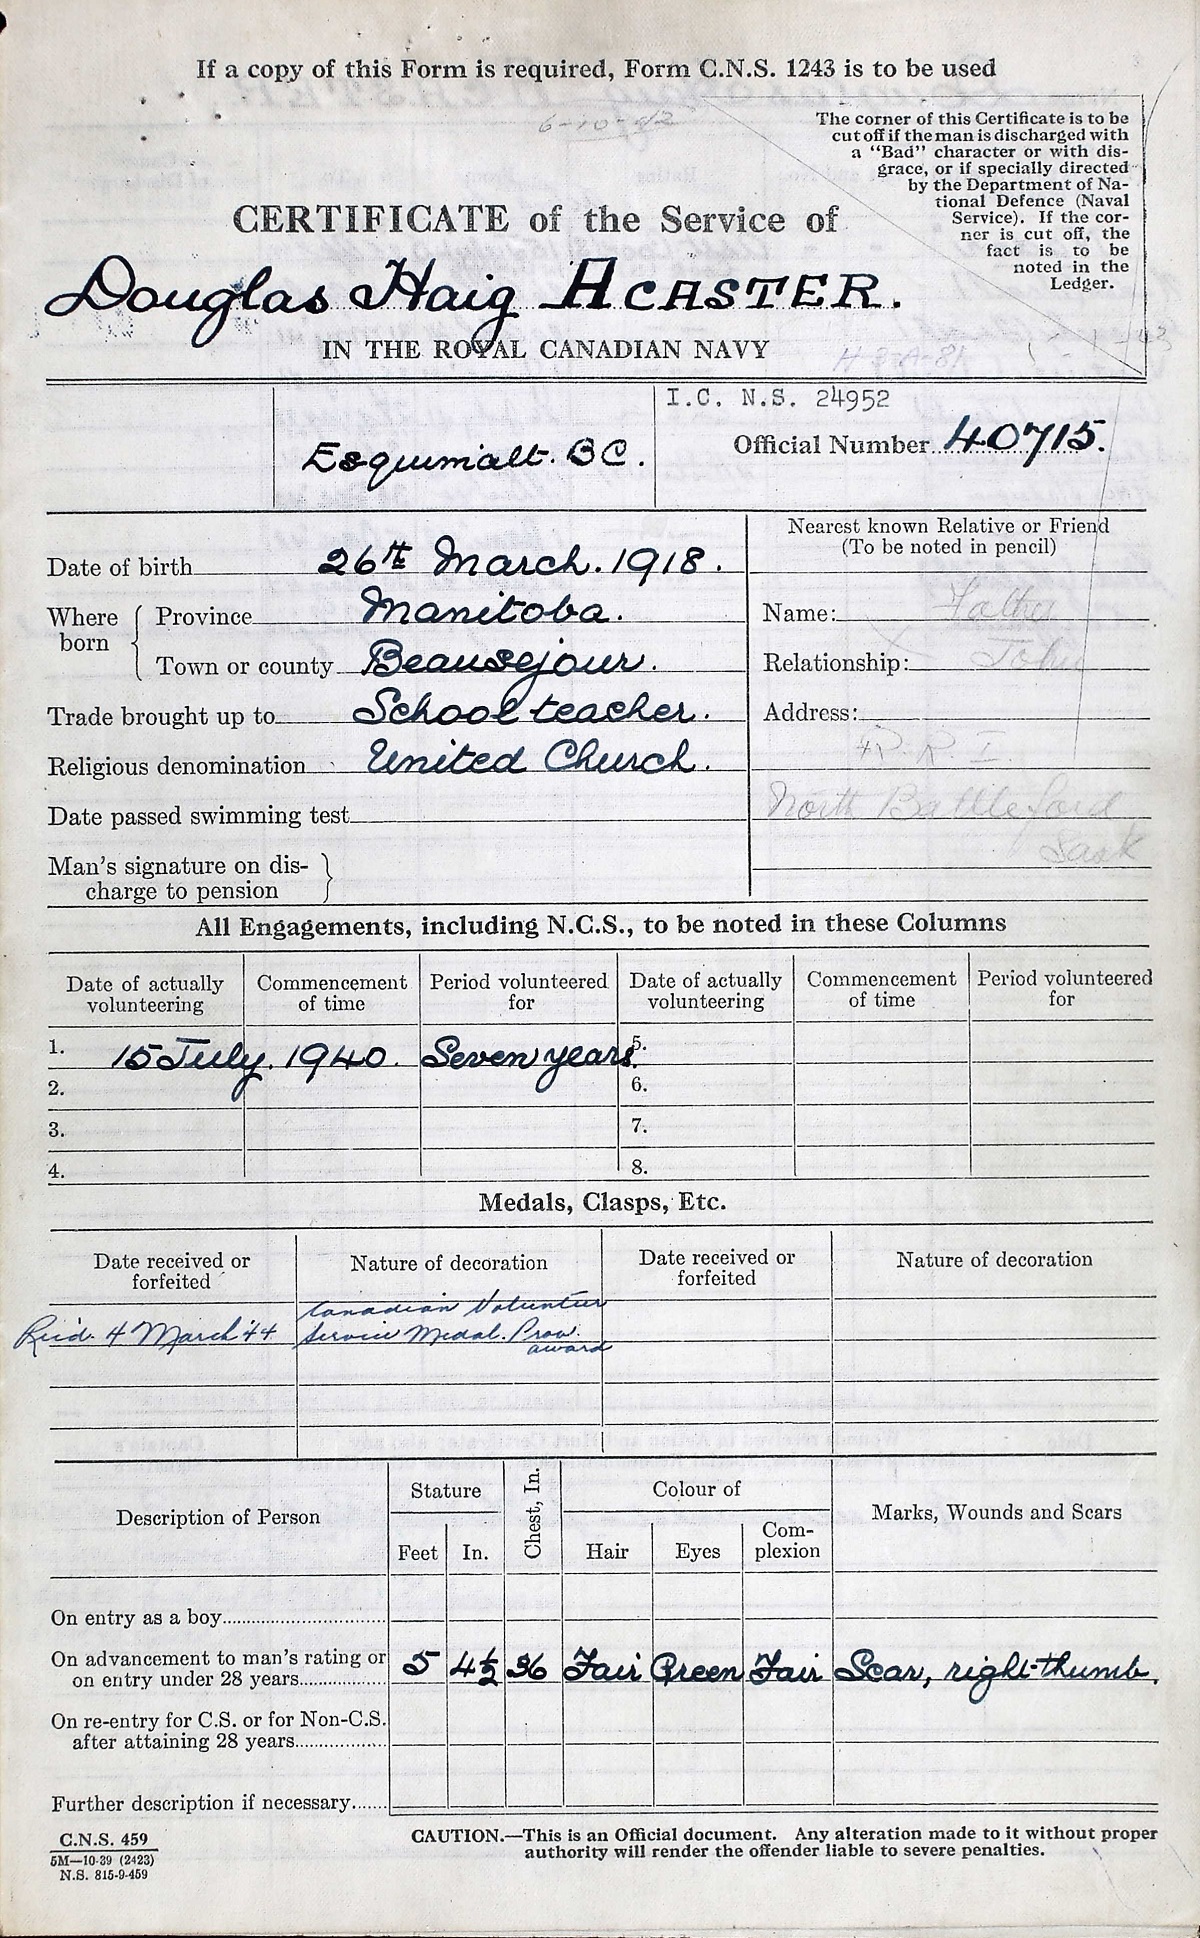 If a copy of this Form is required, Form C.N.S. 1243 is to be used
6-10-42
The corner of this Certificate is to be
cut off if the man is discharged with
a "Bad" character or with dis-
grace, or if specially directed
by the Department of Na-
tional Defence (Naval
Service). If the cor-
ner is cut off, the
fact is to be
noted in the
Ledger.
CERTIFICATE of the Service of
Douglas Haig ACASTER.
IN THE ROYAL CANADIAN NAVY
I.C. N.S. 24952
Esquimalt. BC.
Official Number 40715.
Nearest known Relative or Friend
(To be noted in pencil)
Date of birth 26th March. 1918.
Where born { Province Manitoba.
Town or county Beausejour.
Name: Father
Relationship: John
Trade brought up to School teacher.
Address:
Religious denomination United Church.
R R 1
Date passed swimming test
North Battleford
Sask
Man's signature on dis-
charge to pension }
All Engagements, including N.C.S., to be noted in these Columns
Date of actually volunteering Commencement of time Period volunteered for Date of actually volunteering Commencement of time Period volunteered for
1. 15 July. 1940. Seven years. 5.
2. 6.
3. 7.
4. 8.
Medals, Clasps, Etc.
Date received or forfeited Nature of decoration Date received or forfeited Nature of decoration
Canadian Volunteer
Rec'd. 4 March '44 Service Medal. Prov.
award
Description of Person Stature Chest, In. Colour of Marks, Wounds and Scars
Feet In. Hair Eyes Com-plexion
On entry as a boy
On advancement to man's rating or
on entry under 28 years 5 4½ 36 Fair Green Fair Scar, right thumb.
On re-entry for C.S. or for Non-C.S.
after attaining 28 years
Further description if necessary
C.N.S. 459
5M—10-39 (2423)
N.S. 815-9-459
CAUTION.—This is an Official document. Any alteration made to it without proper
authority will render the offender liable to severe penalties.